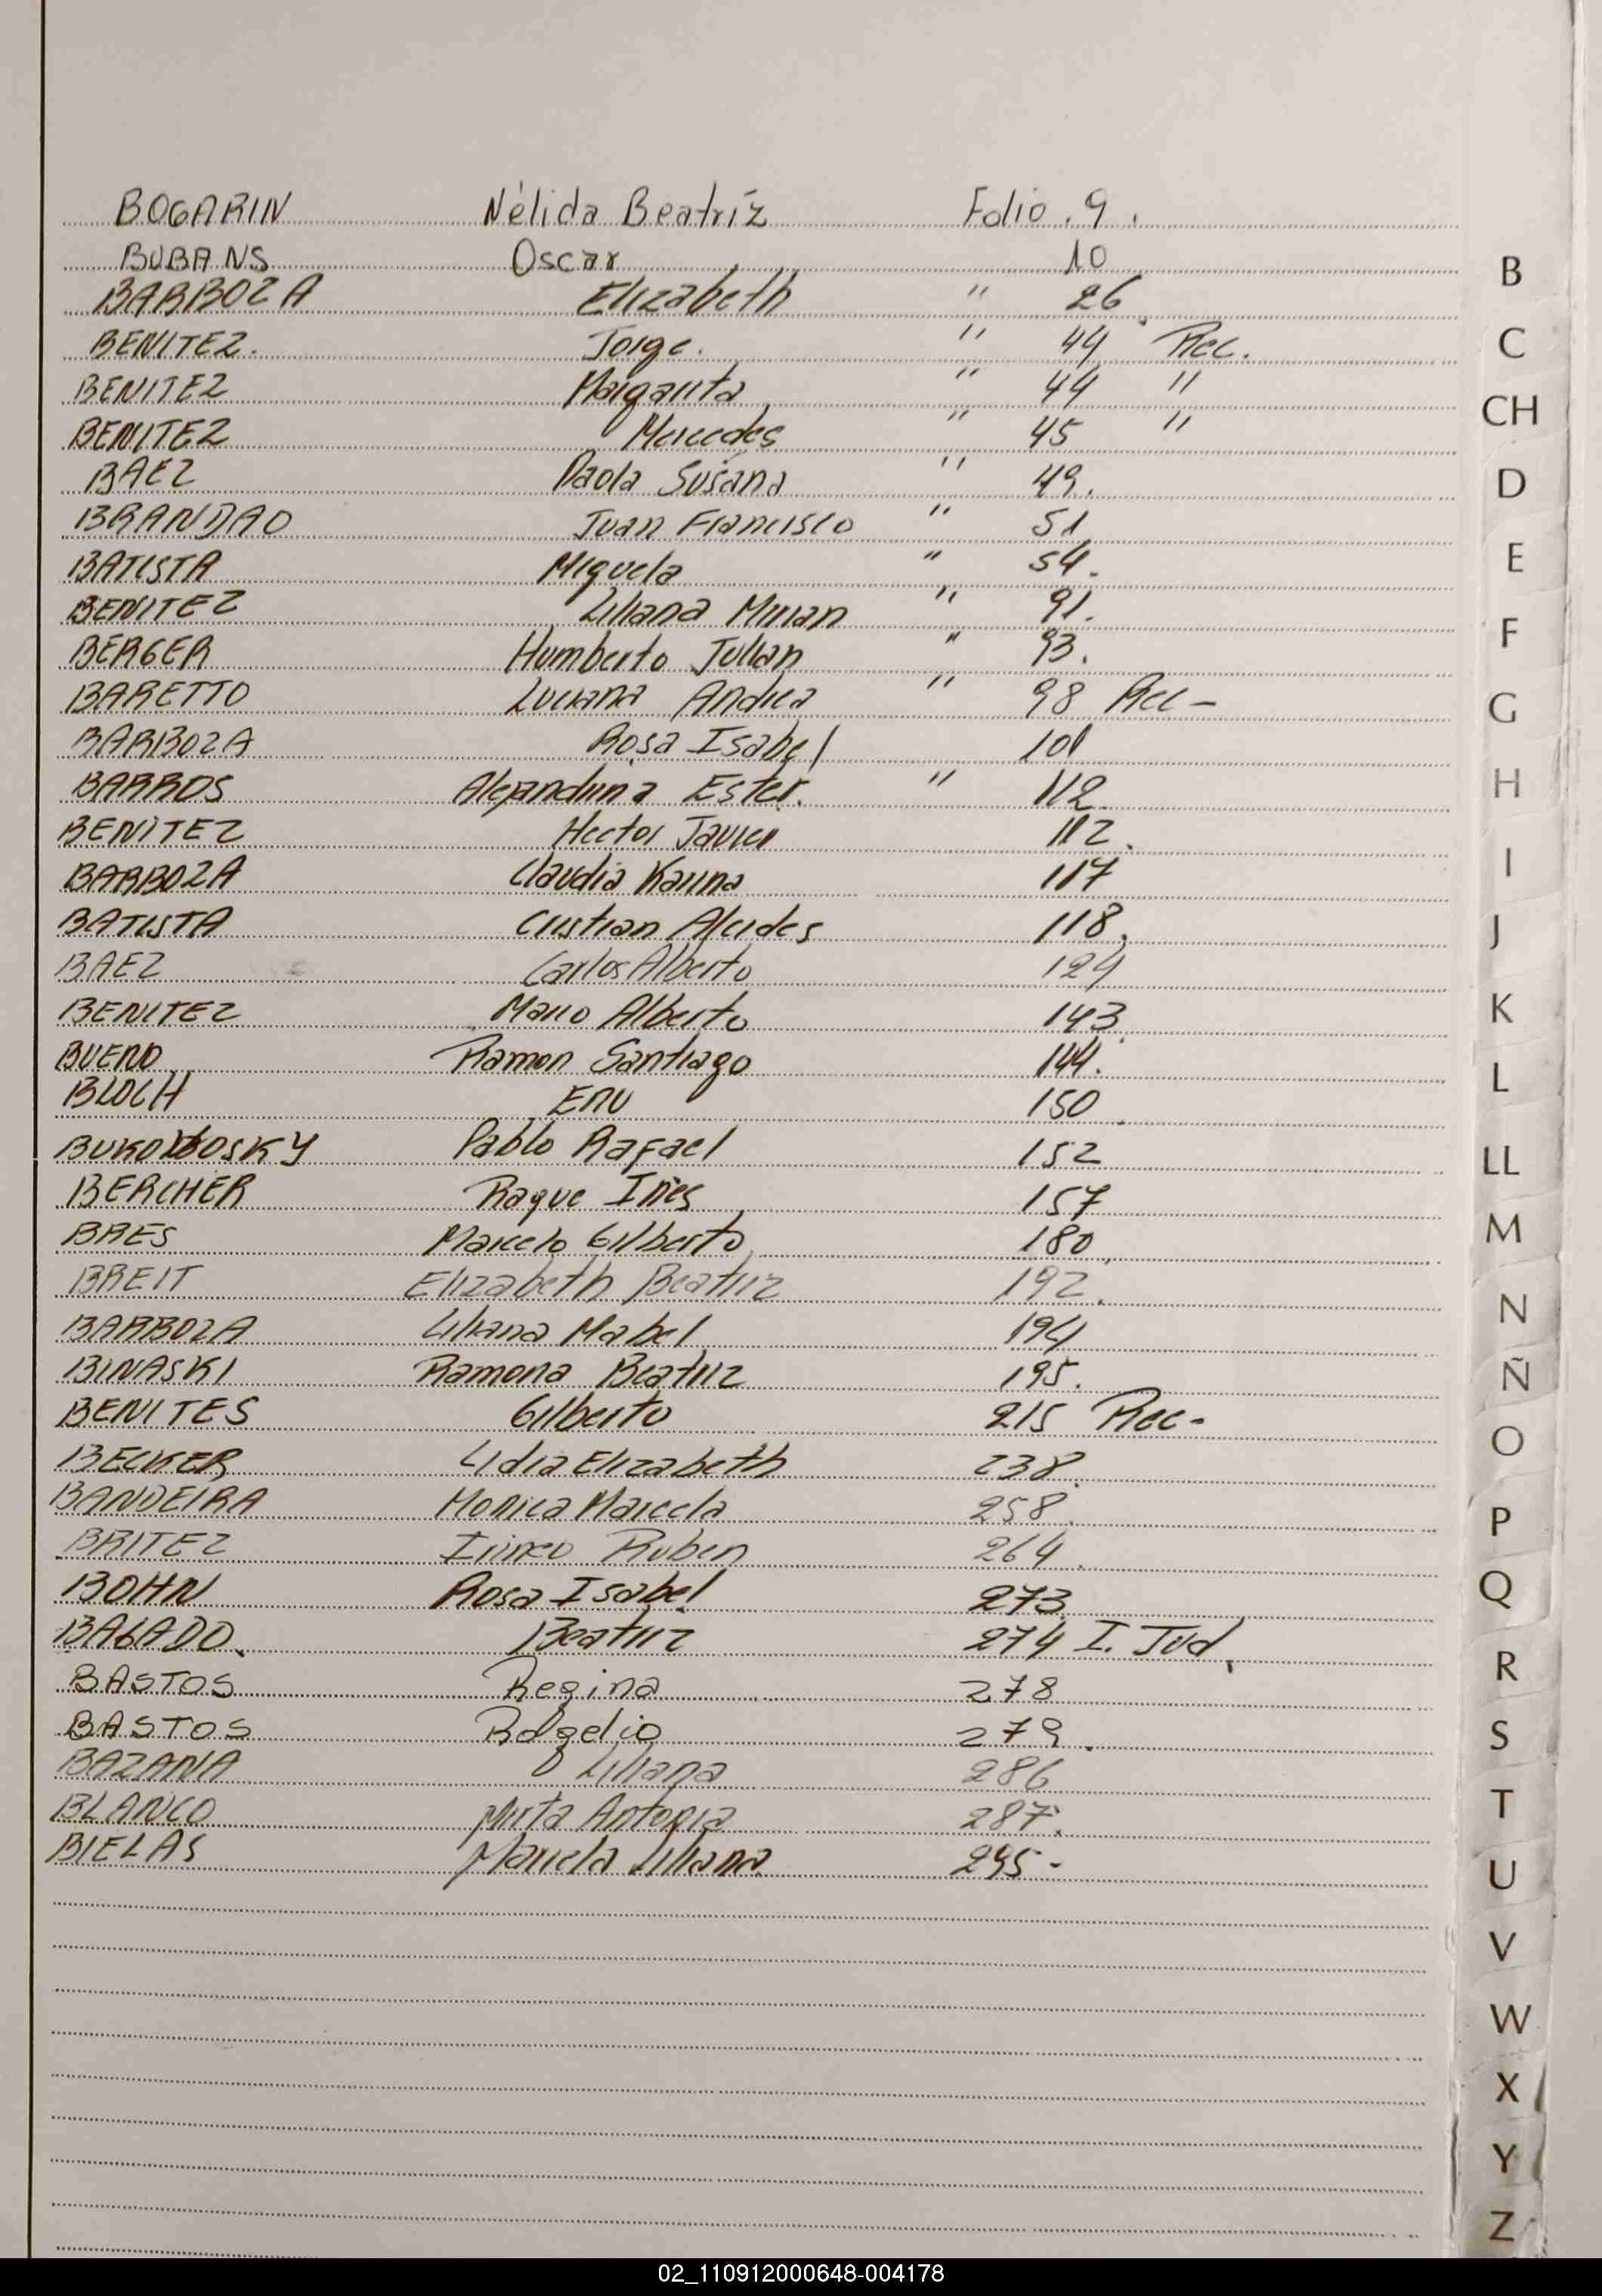 BOGARIN Nélida Beatríz Folio. 9.
BUBANS Oscar 10
BARBOZA Elizabeth " 26
BENITEZ. Jorge. " 44 Rec.
BENITEZ Margarita " 44 "
BENITEZ Mercedes " 45 "
BAEZ Paola Susana " 49.
BRANDAO Juan Francisco " 51
BATISTA Miguela " 54.
BENITEZ Liliana Mirian " 91.
BERGER Humberto Julian " 93.
BARETTO Luciana Andrea " 98 Rec-
BARBOZA Rosa Isabel 101
BARROS Alejandrina Ester. " 112.
BENITEZ Hector Javier 112.
BARBOZA Claudia Karina 117
BATISTA Cristian Alcides 118.
BAEZ Carlos Alberto 124
BENITEZ Mario Alberto 143.
BUENO Ramon Santiago 144.
BLOCH 150
BUKOWOSKY Pablo Rafael 152
BERCHER Raque Ines 157
BRES Marcelo Gilberto 180
BREIT Elizabeth Beatriz 192.
BARBOZA Liliana Mabel 194
BINASKI Ramona Beatriz 195.
BENITES Gilberto 215 Rec-
BECKER Lidia Elizabeth 238.
BANDEIRA Monica Marcela 258.
BRITEZ Irineo Ruben 264.
BOHN Rosa Isabel 273.
BAGADO. Beatriz 274 I. Jud.
BASTOS Regina 278
BASTOS Rogelio 279.
BAZANA Liliana 286
BLANCO Mirta Antonia 287.
BIELAS Mariela Liliana 295-
B
C
CH
D
E
F
G
H
I
J
K
L
LL
M
N
Ñ
O
P
Q
R
S
T
U
V
W
X
Y
Z
02_110912000648-004178